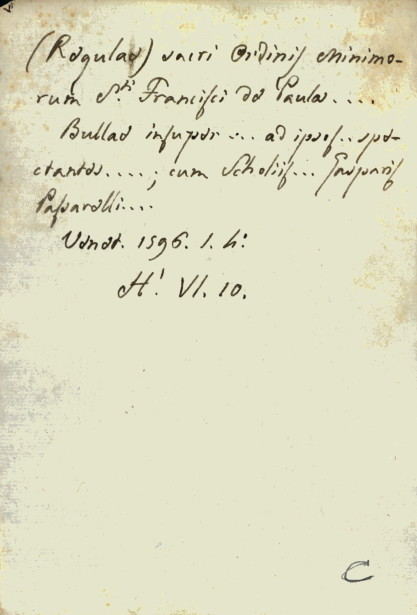 (Regulae) sacri Ordinis Minimo-
rum S.ti Francisci de Paula....
Bullae insuper ... ad ipsos.. spe-
ctantes....; cum Scholiis... Gasparis
Passarelli....
Venet. 1596. 1. 4:
H! VI. 10.
C